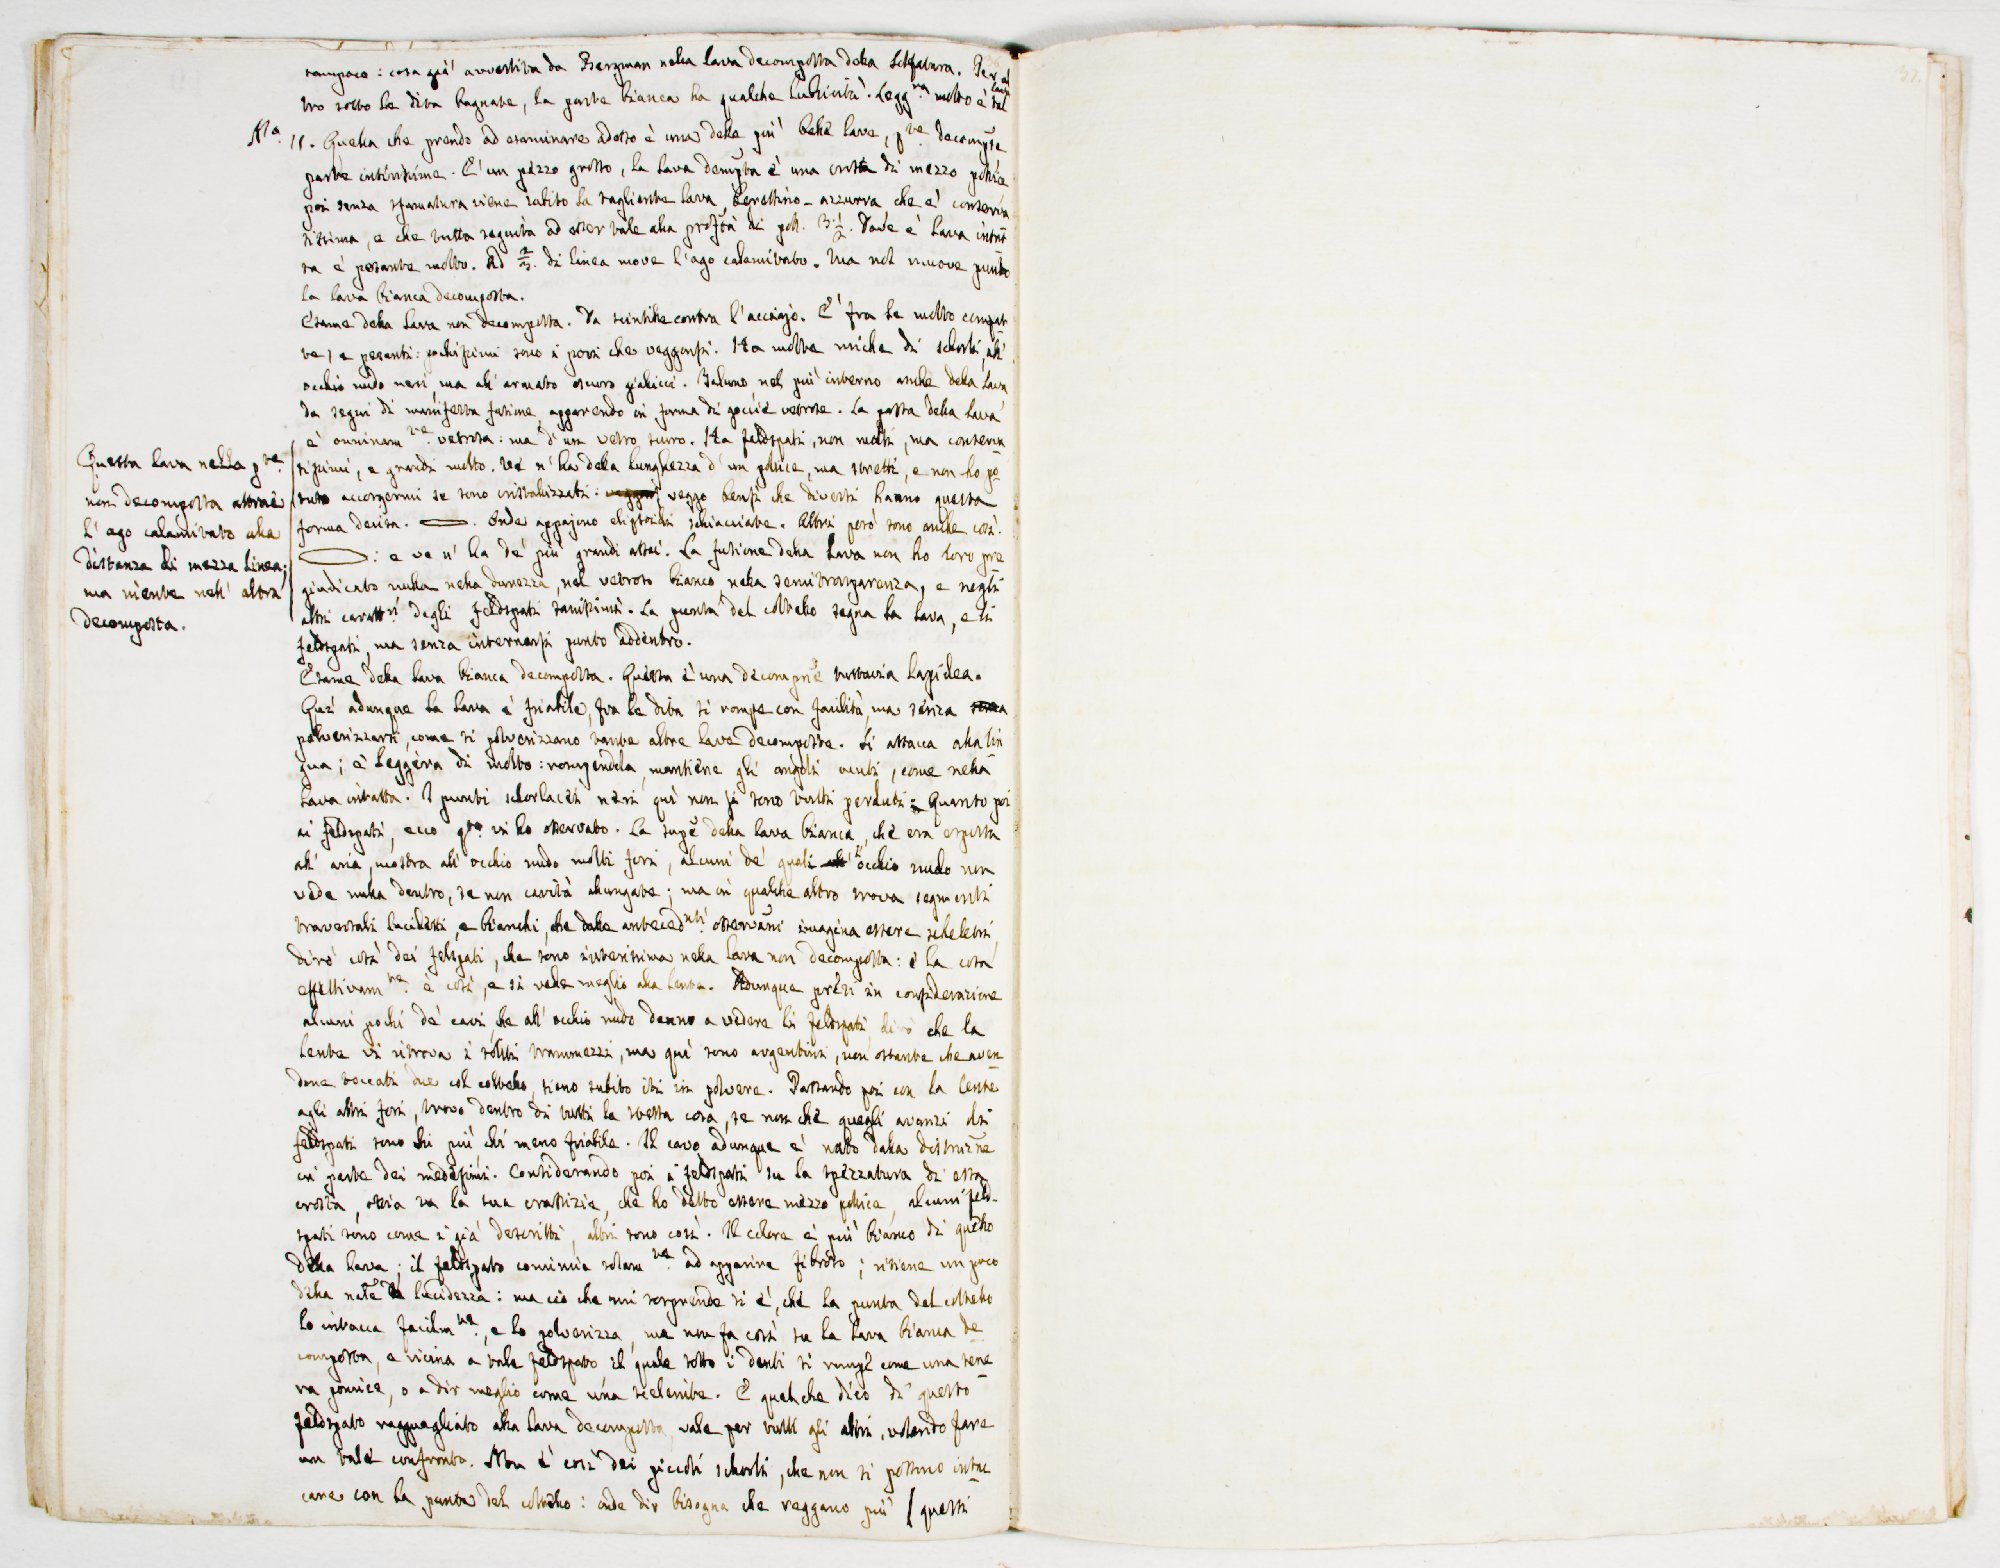 rampaco: cosa già avvertita da Bergman nella lava decomposta della Solfatara. Per al
tro sotto le dita bagnate, la parte bianca ha qualche lubricità. Legg.ra molto è tal lava
N.o 11. Quella che prendo ad esaminare adesso è una delle più belle lave, p.te decompste
parte intirissime. E' un pezzo grosso, la lava dempsta è una crosta di mezzo pollice
poi senza sfumatura viene subito la tagliente lava, berettino-azzurra che è conserva
tissima, e che tutta seguita ad esser tale alla profdtà di poll. 3 1/2. Dov'è lava intat
ta è pesante molto. Ad 2/3. di linea move l'ago calamitato. Ma nol muove punto
la lava bianca decomposta.
Esame della lava non decomposta. Da scintille contra l'acciajo. E' fra le molto compat
te, e pesanti: pochissimi sono i pori che veggonsi. Ha molte miche di schorli, all'
occhio nudo neri ma all'armato oscuro giallicci. Taluno nel più interno anche della lava
da segni di manifesta fusione, apparendo in forma di goccie vetrose. La pasta della lava
è onninam.te vetrosa: ma d'un vetro scuro. Ha feldspati, non molti, ma conserva
tissimi, e grandi molto. Ve n'ha della lunghezza d'un pollice, ma stretti, e non ho po
tuto accorgermi se sono cristallizzati: veggo bensì che diversi hanno questa
forma decisa. . Onde appajono elipsoidi schiacciate. Altri però sono anche così.
: e ve n'ha de' più grandi assai. La fusione della lava non ho loro pre
giudicato nulla nella durezza, nel vetroso bianco nella semitrasparenza, e negli
altri caratt.ri degli feldspati sanissimi. La punta del coltello segna la lava, e li
feldspati, ma senza internarsi punto addentro.
Questa lava nella p.te
non decomposta attrae
l'ago calamitato alla
distanza di mezza linea;
ma niente nell'altra
decomposta.
Esame della lava bianca decomposta. Questa è una decompne tuttavia lapidea.
Quì adunque la lava è friabile, fra le dita si rompe con facilità, ma senza
polverizzarsi, come si polverizzano tante altre lave decomposte. Si attacca alla lin
gua; è leggera di molto: rompendola, mantiene gli angoli acuti, come nella
lava intatta. I punti schorlacei neri quì non si sono tutti perduti: Quanto poi
ai feldspati, ecco q.to vi ho osservato. La supe della lava bianca, che era esposta
all'aria, mostra all'occhio nudo molti fori, alcuni de' quali l'occhio nudo non
vede nulla dentro, se non cavità allungate; ma in qualche altro trova segmenti
traversali lucidetti, e bianchi, che dalle anteced.nti osservani imagina essere scheletri,
dirò così dei felspati, che sono interissima nella lava non decomposta: e la cosa
effettivam.te è così, e si vede meglio alla lente. Adunque presi in considerazione
alcuni pochi de' cavi che all'occhio nudo danno a vedere li feldspati, dirò che la
lente vi ritrova i soliti tramezzi, ma quì sono argentini, non ostante che aven
done toccati due col coltello, sieno subito iti in polvere. Passando poi con la lente
agli altri fori, trovo dentro di tutti la stessa cosa, se non che quegli avanzi dei
feldspati sono chi più chi meno friabile. Il cavo adunque è nato dalla distruzne
in parte dei medesimi. Considerando poi i feldspati su la spezzatura di essa
crosta, ossia su la sua crassizie, che ho detto essere mezzo pollice, alcuni feld-
spati sono come i già descritti, altri sono così. Il colore è più bianco di quello
della lava; il feldspato comincia solam.te ad apparire fibroso; ritiene un poco
della nate lucidezza: ma ciò che mi sorprende si è, che la punta del coltello
lo intacca facilm.te, e lo polverizza, ma non fa così su la lava bianca de
composta, e vicina a tale feldspato il quale sotto i denti si rompe come una tene
ra pomice, o a dir meglio come una selenite. E quel che dico di questo
feldspato ragguagliato alla lava decomposta, vale per tutti gli altri, volendo fare
un tale confronto. Non è così dei piccoli schorli, che non si possono intac
care con la punta del coltello: onde dir bisogna che reggano più / questi
37.